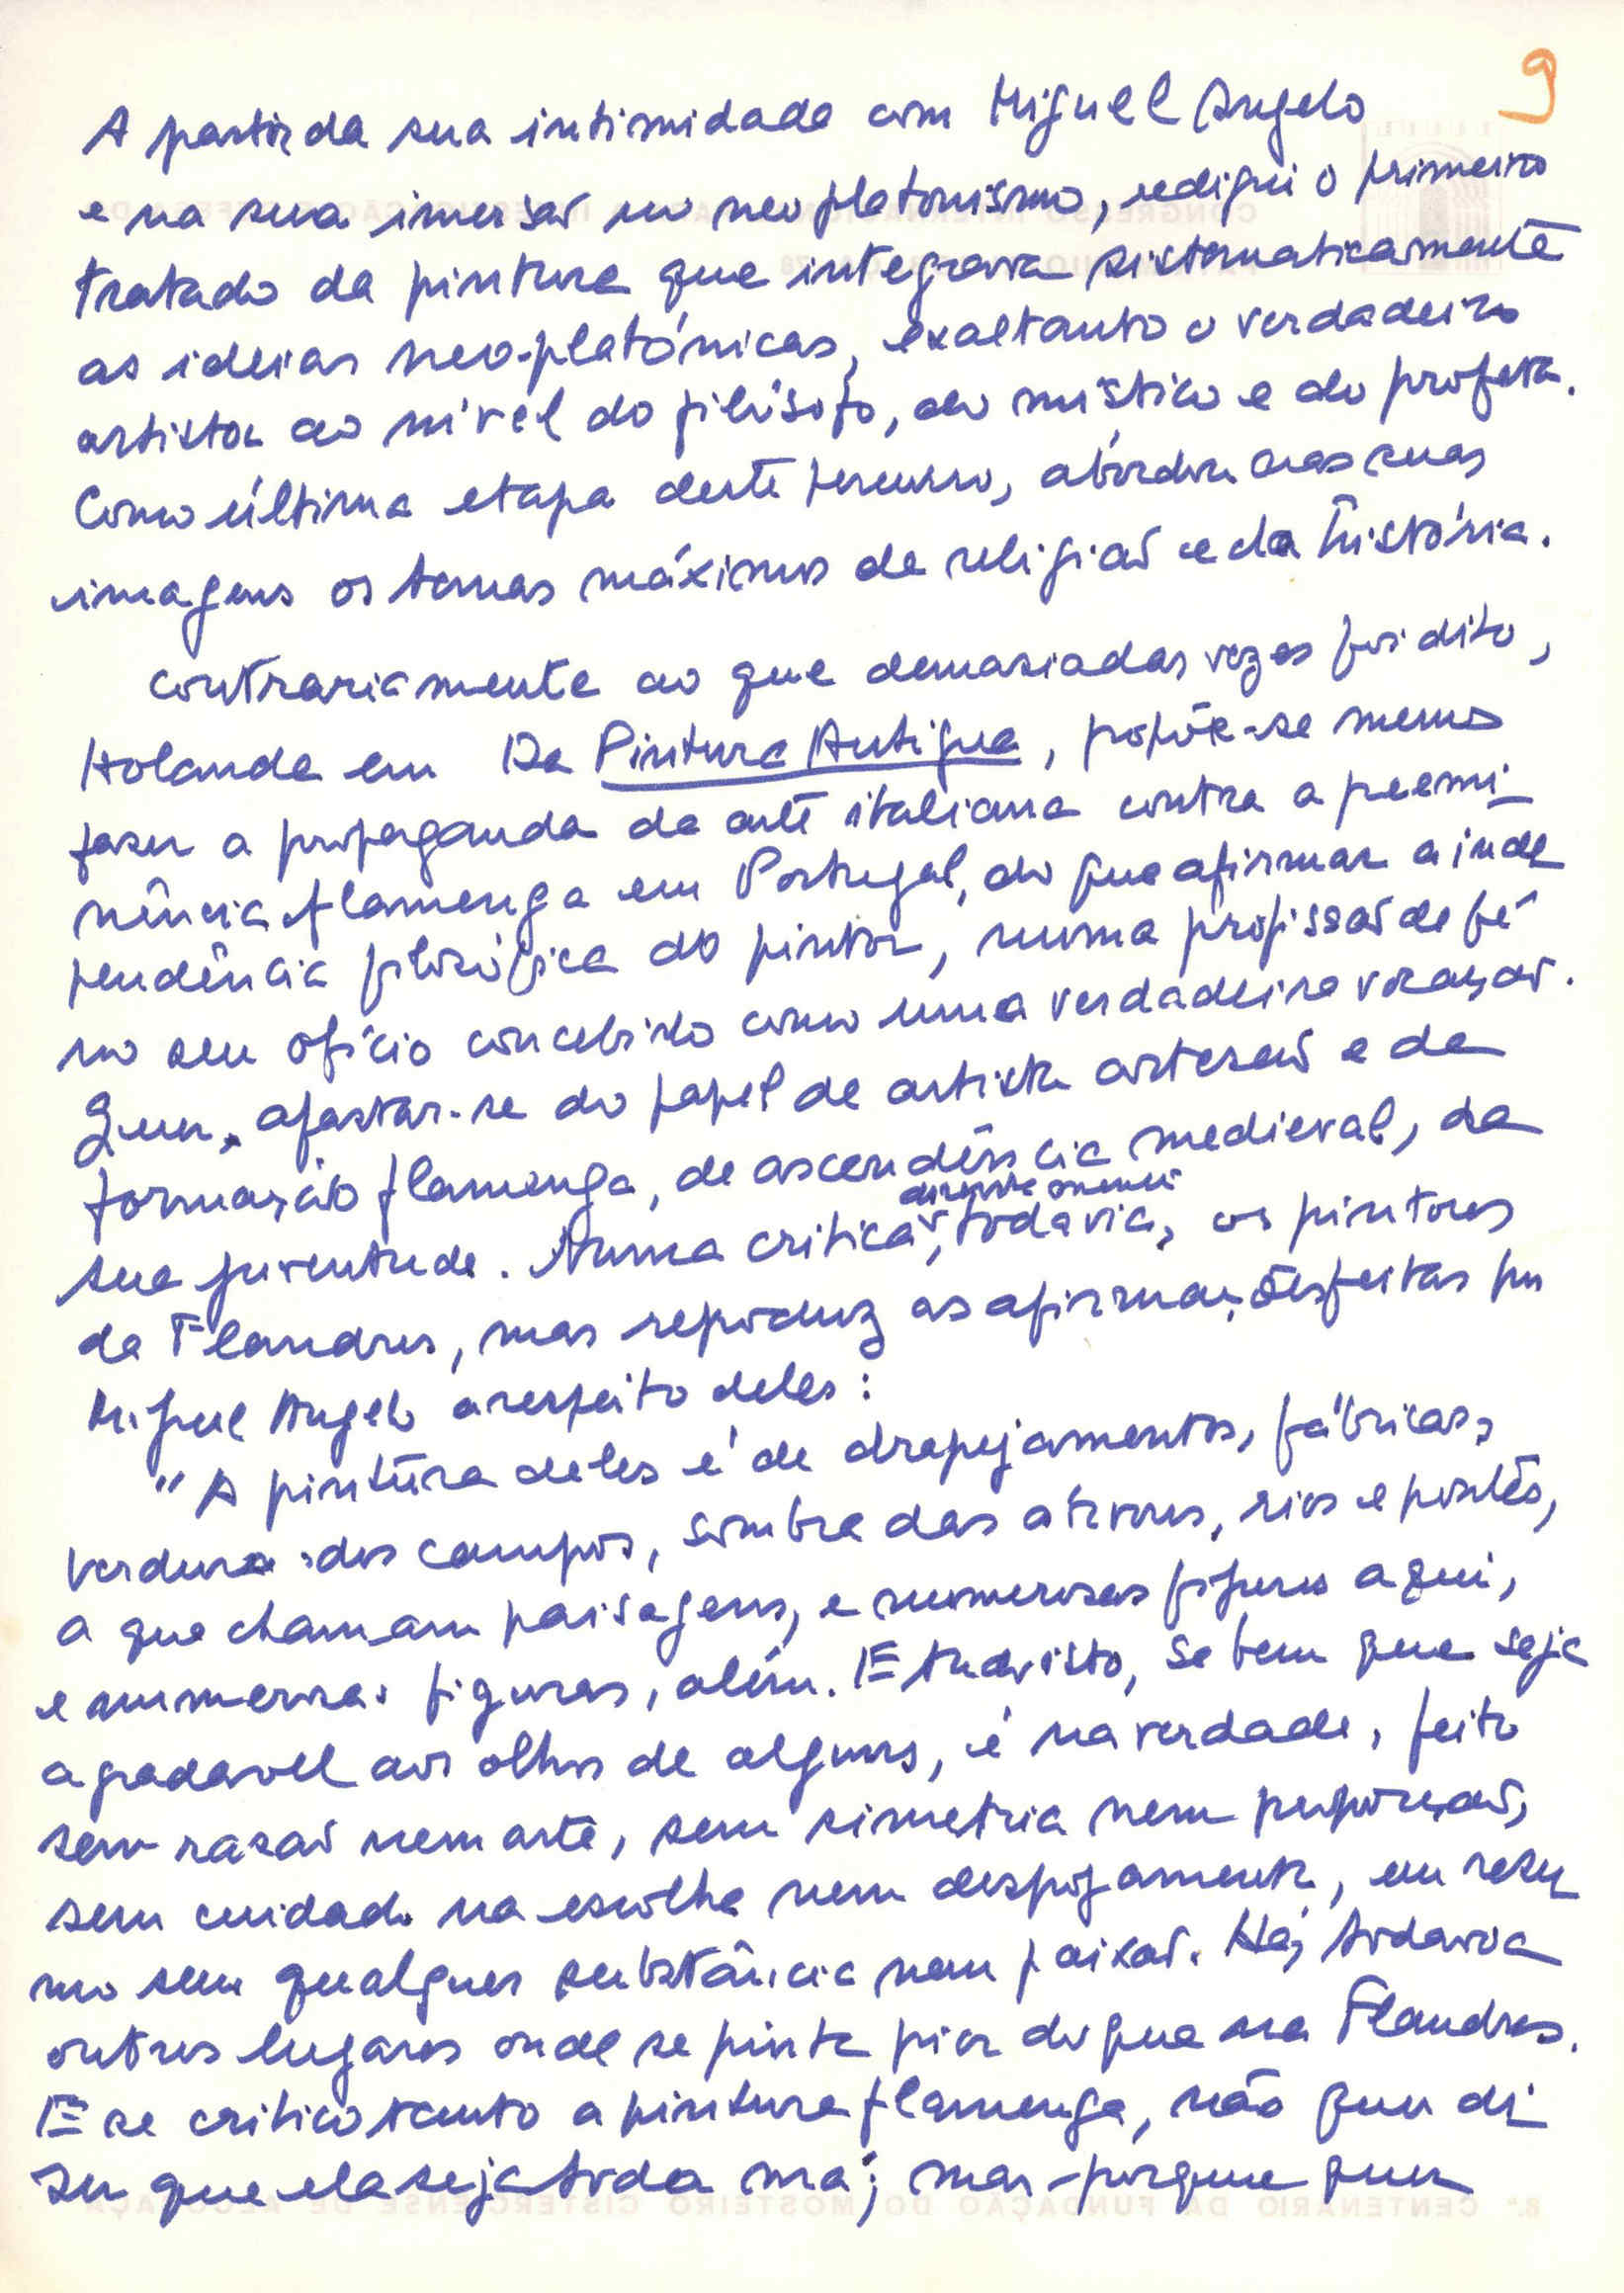 9
A partir da sua intimidade com Miguel Angelo
e na sua imersão no neoplatonismo, redigiu o primeiro
tratado da pintura que integrava sistematicamente
as ideias neo-platónicas, exaltanto o verdadeiro
artista ao nível do filósofo, do místico e do profeta.
Como última etapa deste percurso, abordou nas suas
imagens os temas máximos da religião e da história.
Contrariamente ao que demasiadas vezes foi dito,
Holanda em Da Pintura Antigua, propõe-se menos
fazer a propaganda da arte italiana contra a preemi-
nência flamenga em Portugal, do que afirmar a inde
pendência filosófica do pintor, numa profissão de fé
no seu ofício concebido como uma verdadeira vocação.
Quer, afastar-se do papel de artista artesão e da
formação flamenga, de ascendência medieval, da
directamente
sua juventude. Nunca critica, todavia, os pintores
da Flandres, mas reproduz as afirmações feitas por
Miguel Angelo a respeito deles:
"A pintura deles é de drapejamentos, fábricas,
verdura dos campos, sombra das árvores, rios e pontes,
a que chamam paisagens, e numerosas figuras aqui,
e numerosas figuras, além. E tudo isto, se bem que seja
agradavel aos olhos de alguns, é na verdade, feito
sem razão nem arte, sem simetria nem proporção,
sem cuidado na escolha nem despojamento, em resu
mo sem qualquer substância nem paixão. Há, todavia
outros lugares onde se pinta pior do que na Flandres.
E se critico tanto a pintura flamenga, não quer di-
zer que ela seja toda má; mas porque quer
8.º CENTENÁRIO DA FUNDAÇÃO DO MOSTEIRO CISTERCIENSE DE ALCOBAÇA